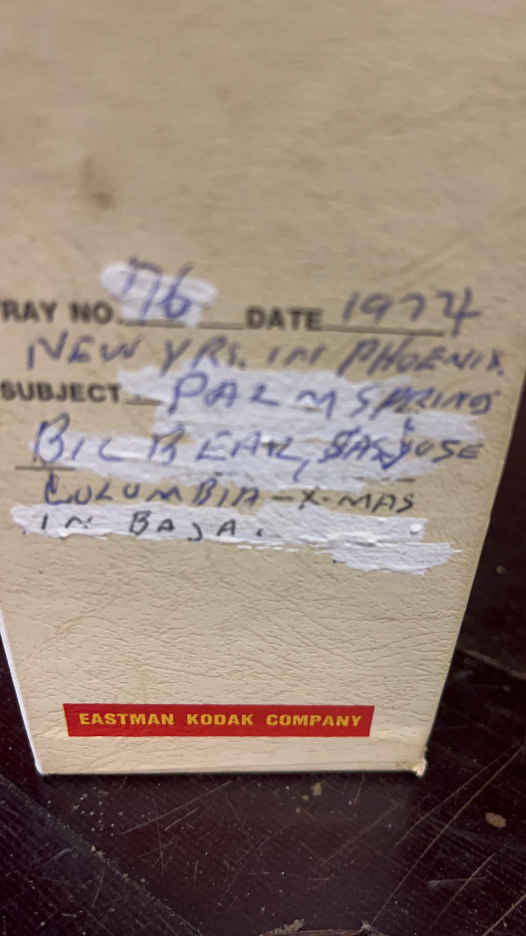 TRAY NO. 76 DATE 1974
NEW YRS. IN PHOENIX
SUBJECT PALM SPRING
BIG BEAR, SAN JOSE
COLUMBIA - X-MAS
IN BAJA.
EASTMAN KODAK COMPANY